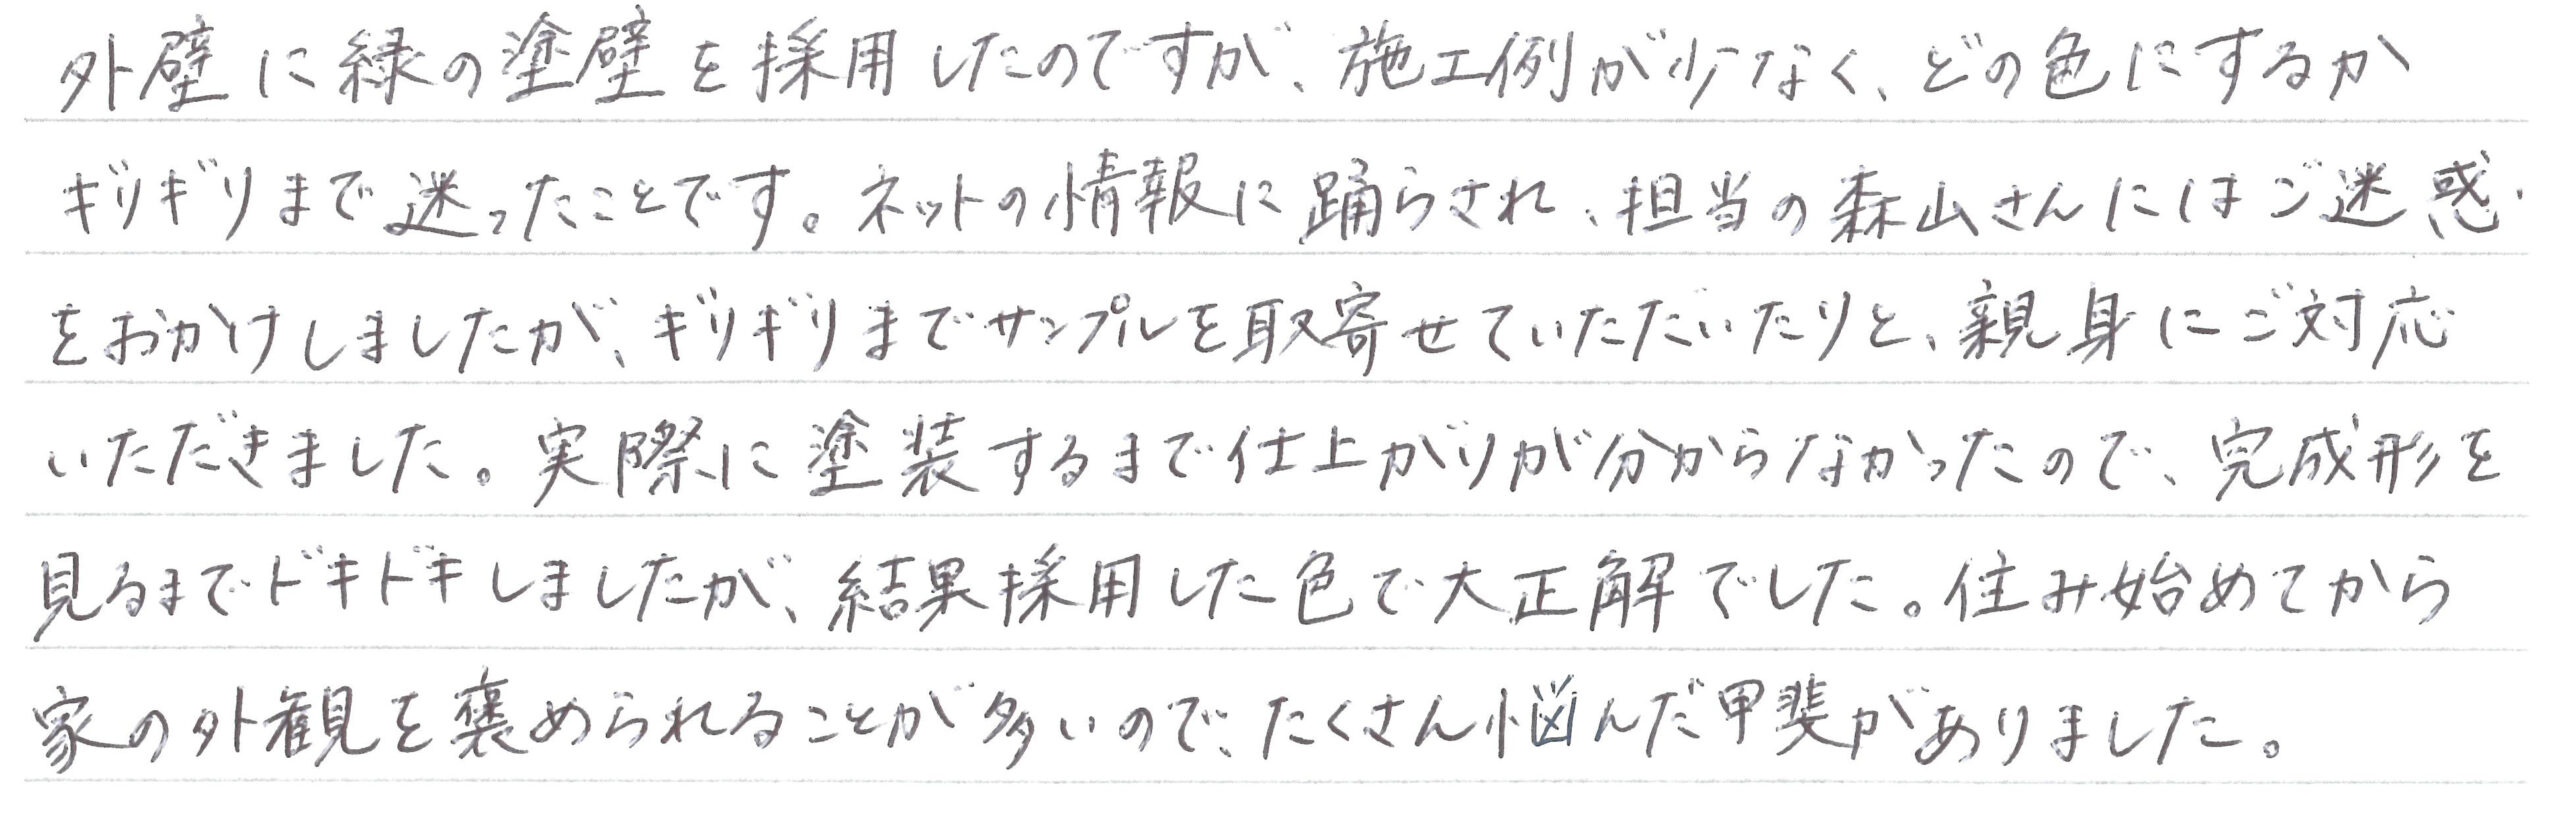 外壁に緑の塗壁を採用したのですが、施工例が少なく、どの色にするか
ギリギリまで迷ったことです。ネットの情報に踊らされ、担当の森山さんにはご迷惑
をおかけしましたが、ギリギリまでサンプルを取寄せていただいたりと、親身にご対応
いただきました。実際に塗装するまで仕上がりが分からなかったので、完成形を
見るまでドキドキしましたが、結果採用した色で大正解でした。住み始めてから
家の外観を褒められることが多いので、たくさん悩んだ甲斐がありました。